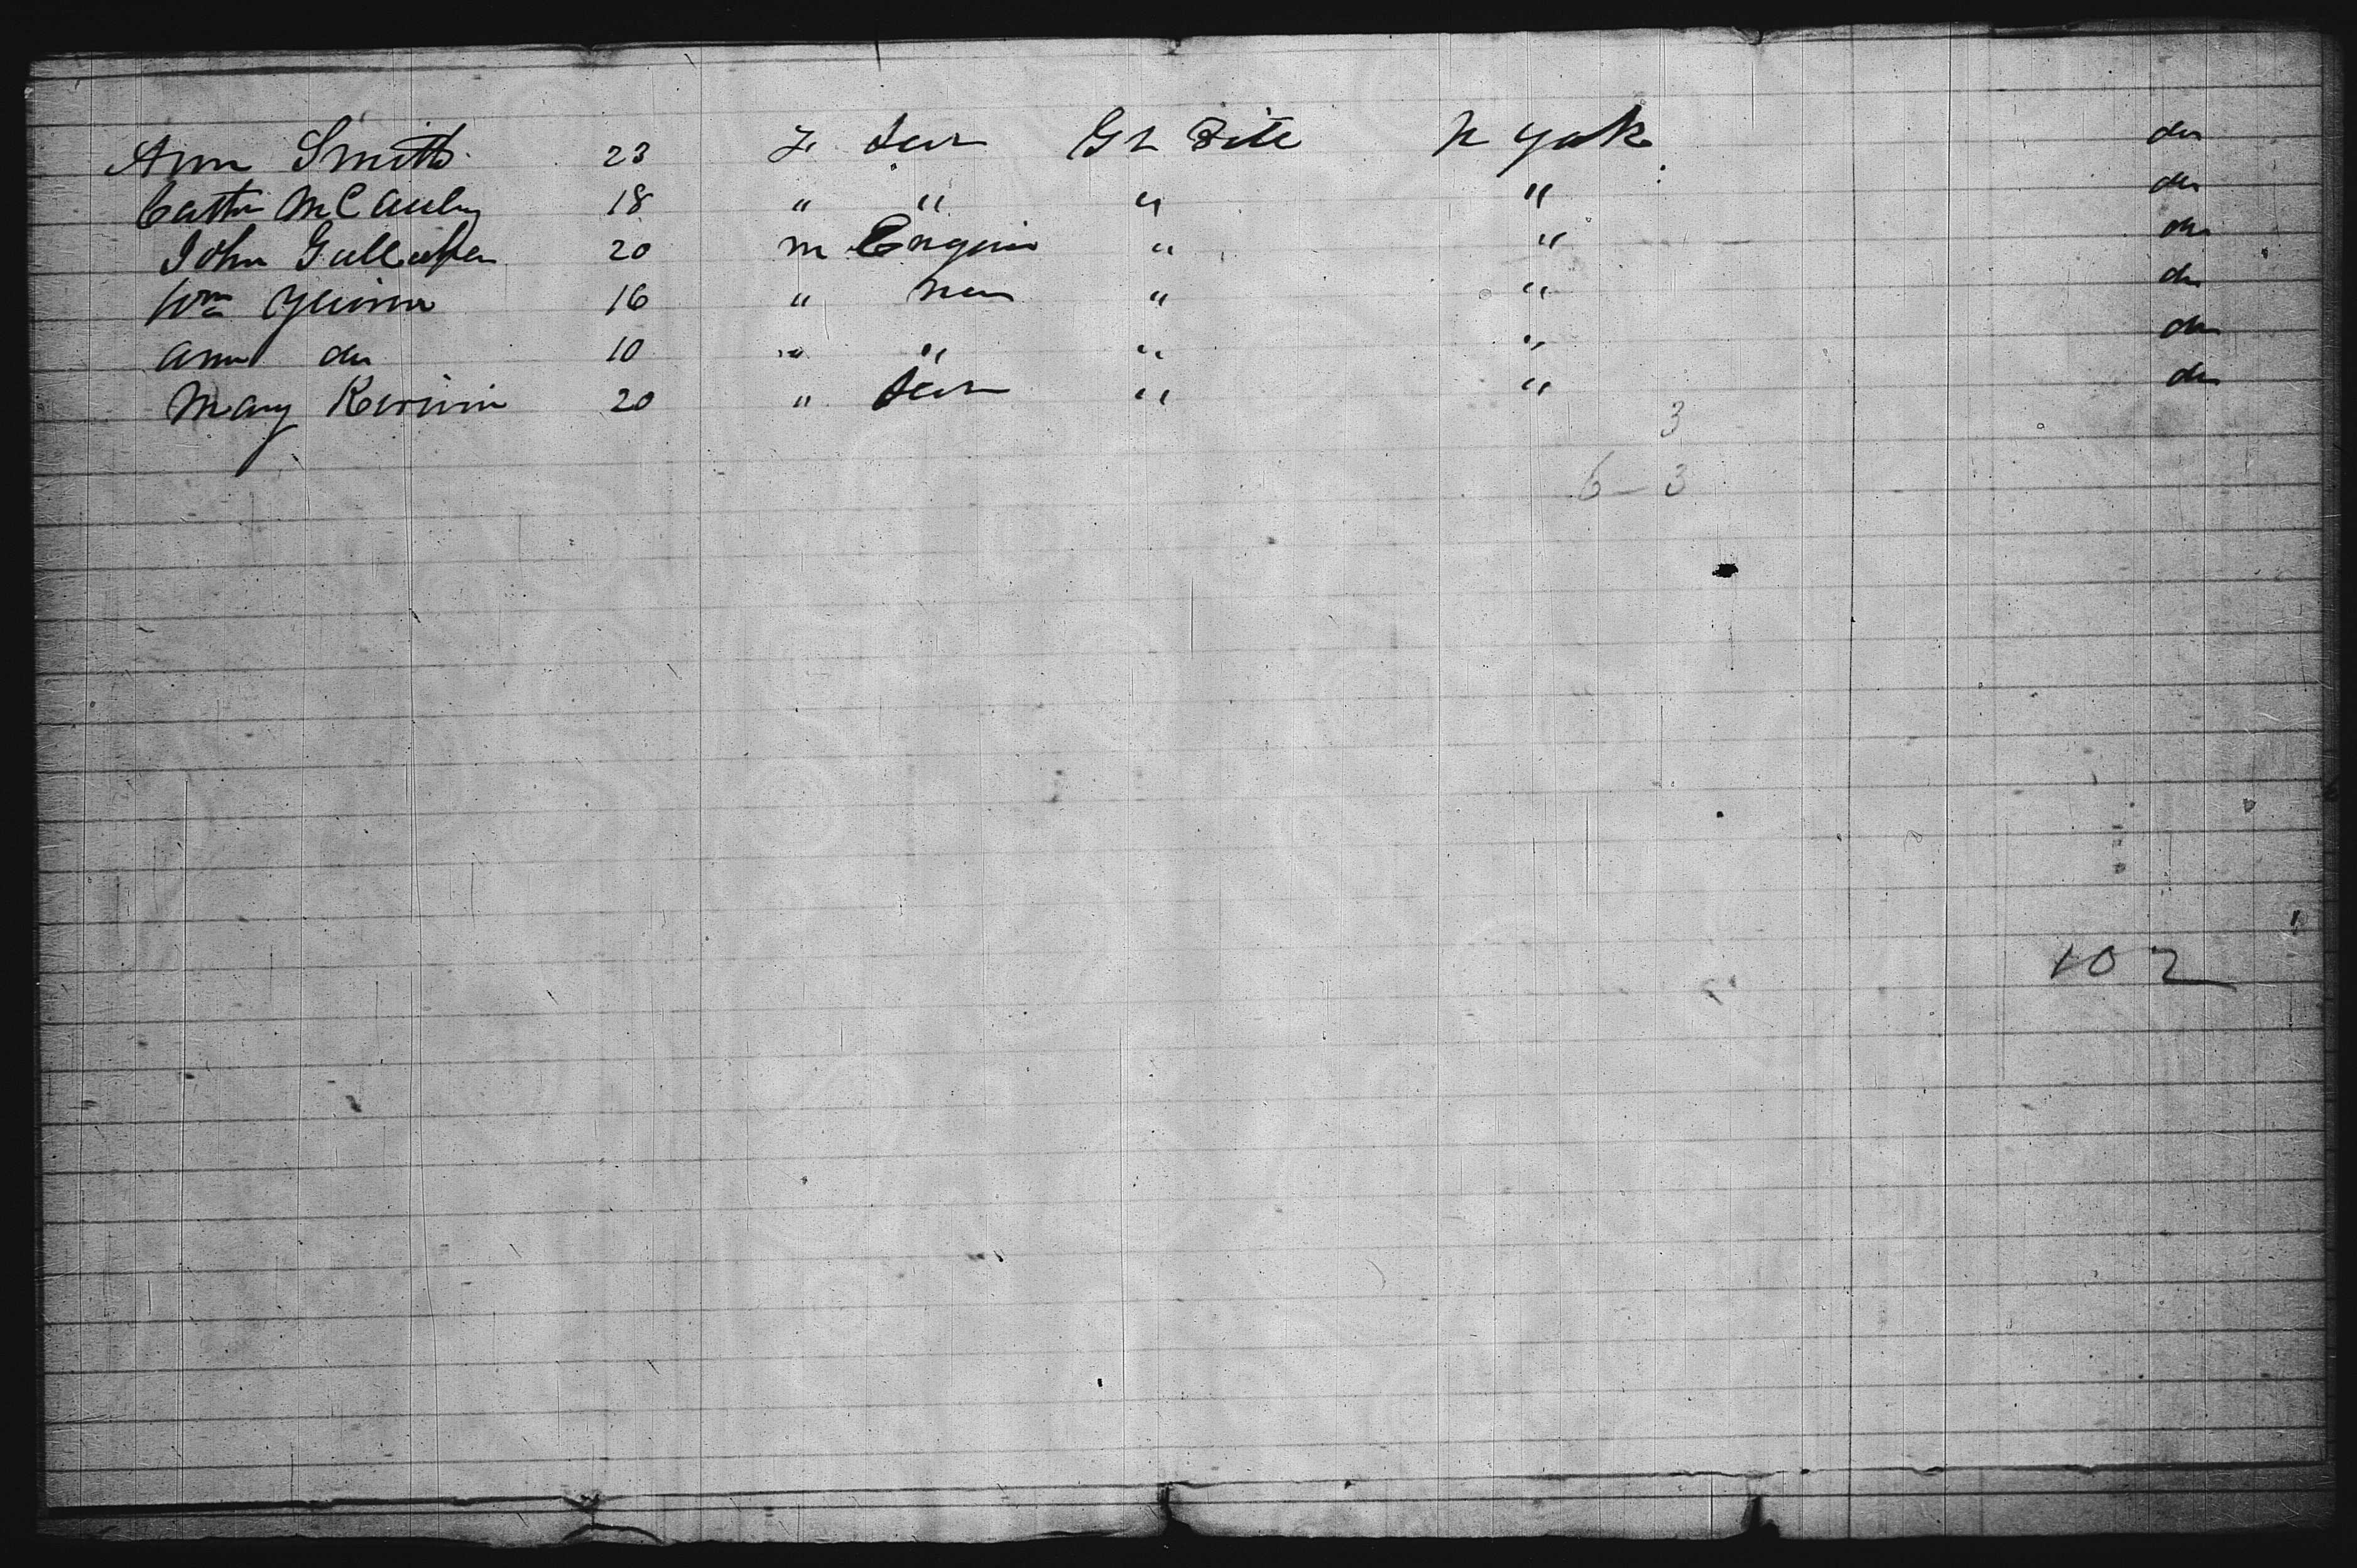 Ann Smith 23 F Serv Gt Brit N York do
Cath McCauley 18 " " " " do
John Gallagher 20 m Engin " " do
Wm Quinn 16 " non " " do
Ann do 10 " " " " do
Mary Kerwin 20 " Serv " " do
3
6 - 3
102